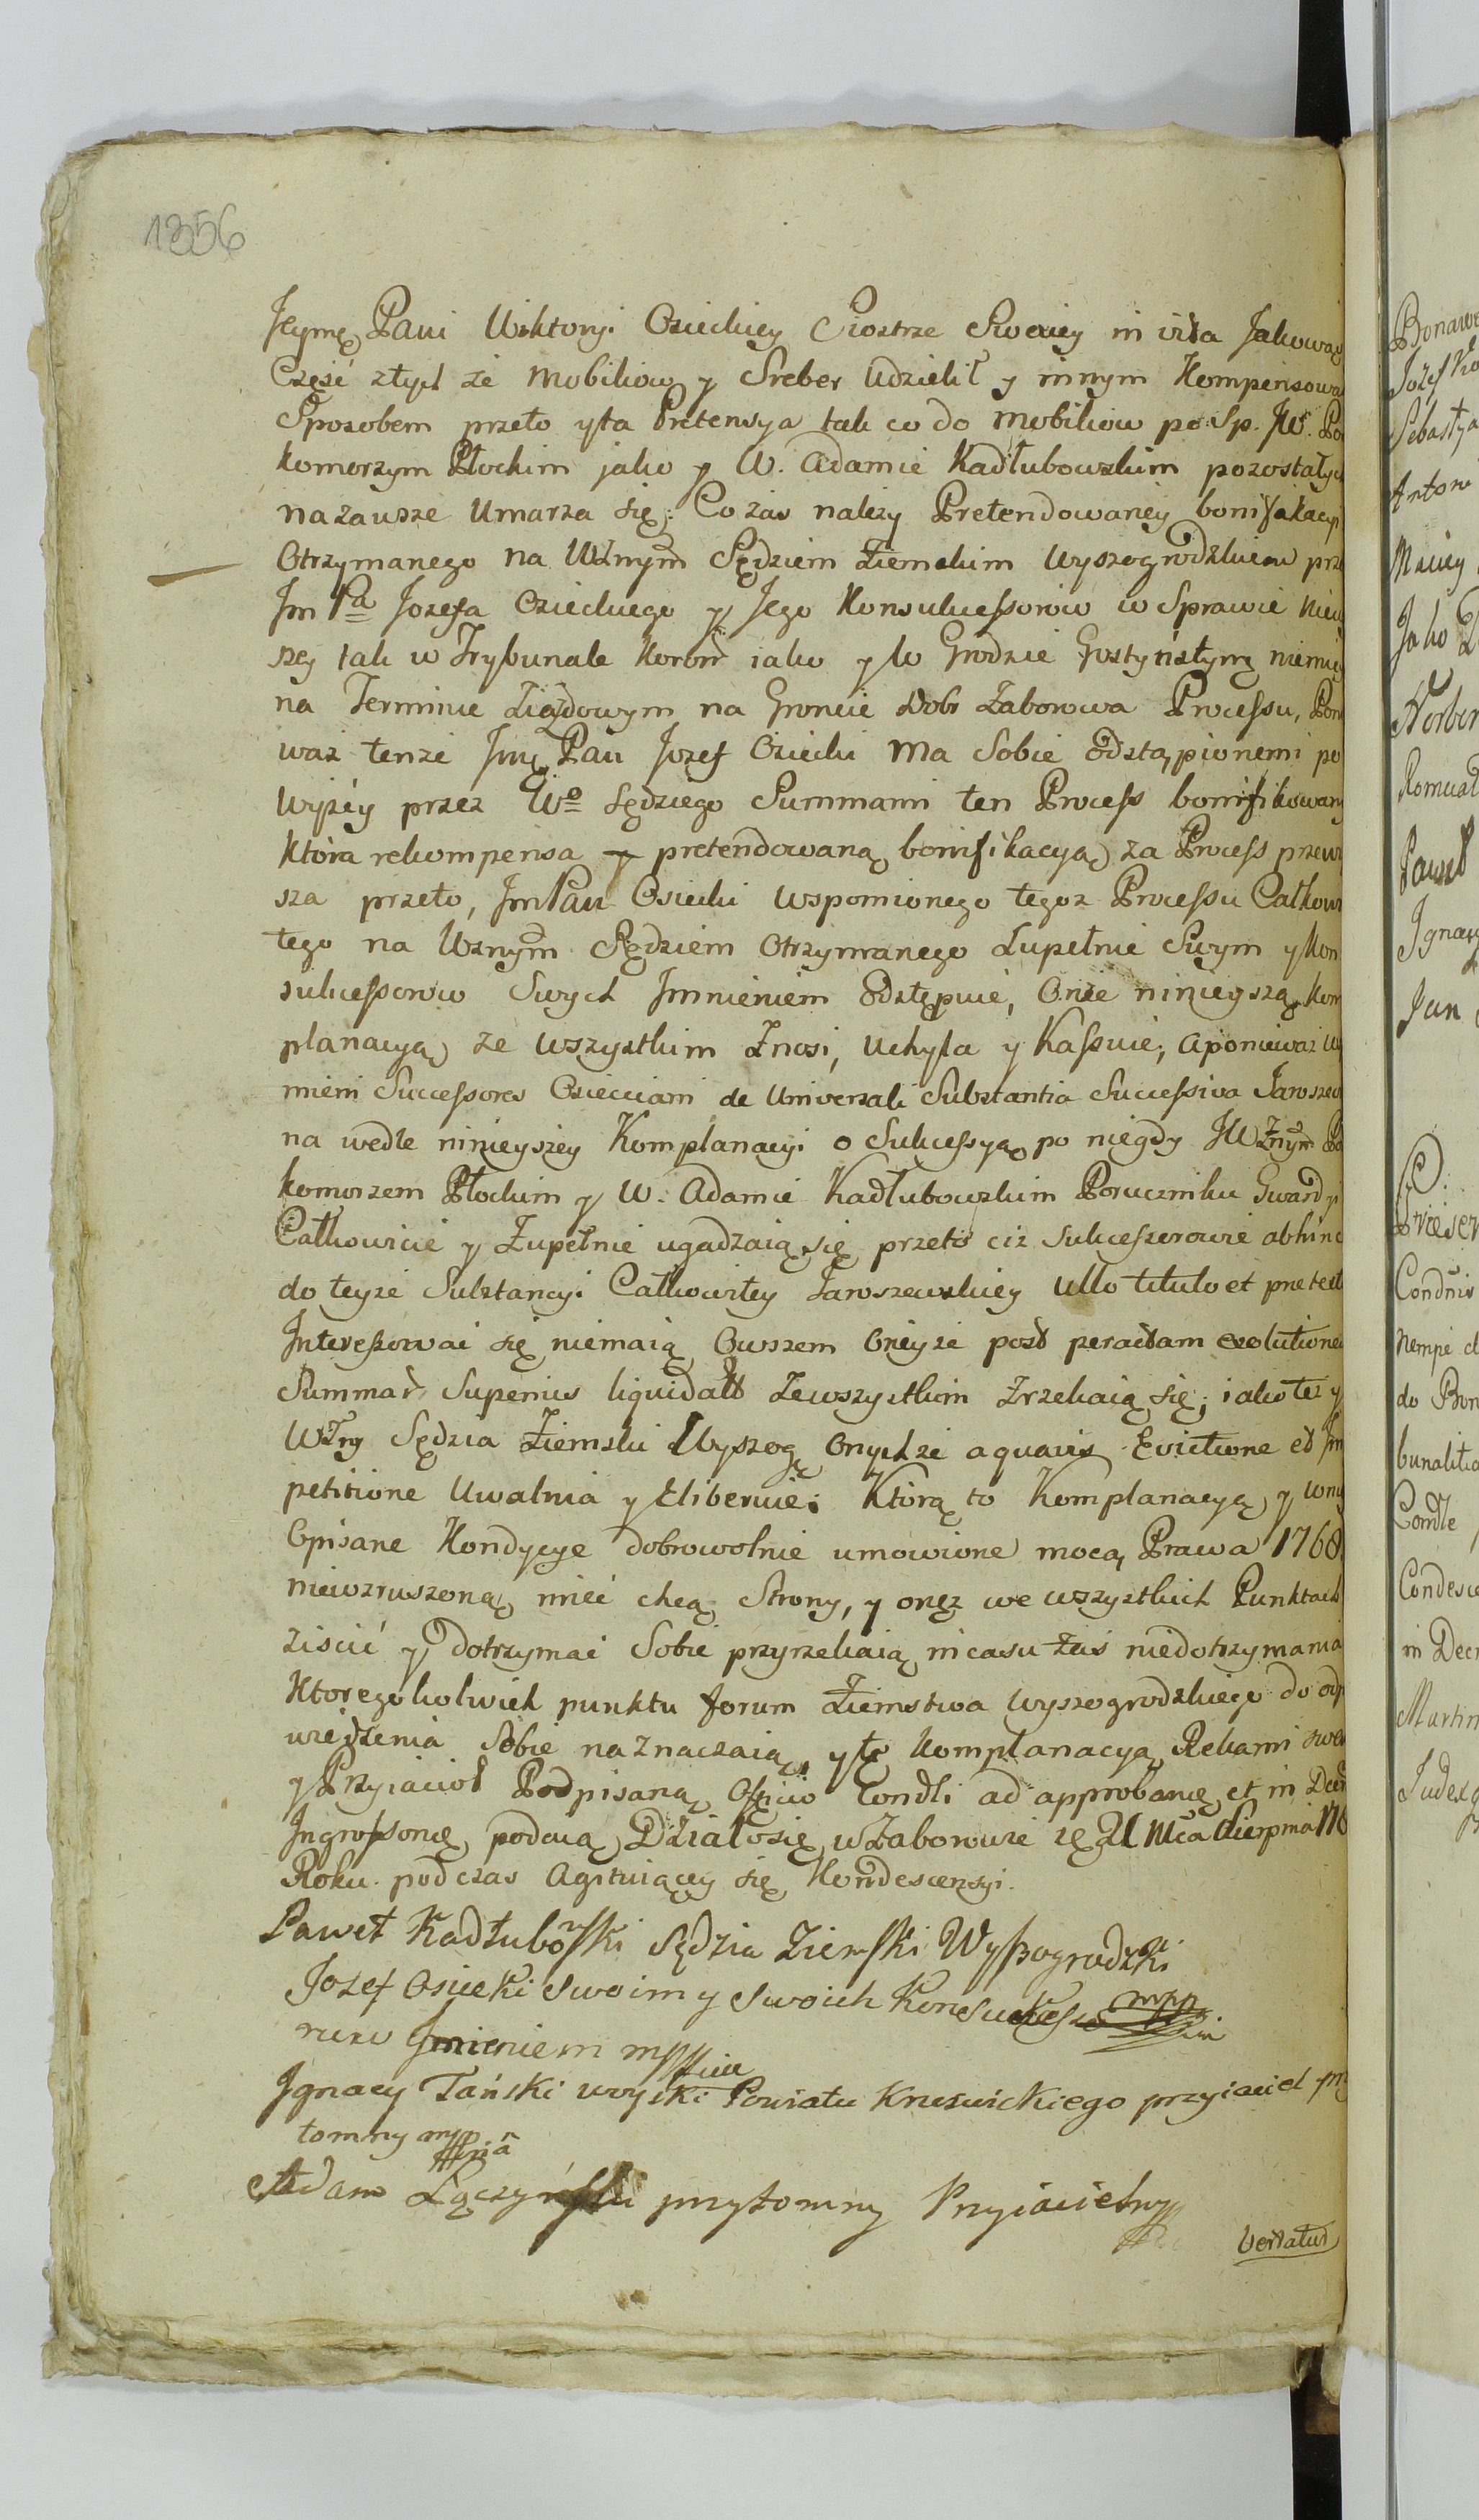 1356
Jeymę Pani Wiktoryi Osieckiey Siostrze Swoiey in vita Jakowąś
Część złych ze Mobiliow y Sreber Udzielił y innym Kompensowa
Sposobem przeto y ta Pretensya tak co do Mobiliow po Sp. JW. Po
komorzym Płockim jako y W. Adamie Kadłubowskim pozostałych
na zawsze Umarza się: Co zaś należy Pretendowaney bonifikacyi
Otrzymanego na Wżnym Sędziem Ziemskim Wyszogrodzkiem prze
Jm Pa Jozefa Osieckiego y Jego Konsukcessorow w Sprawie Niniey
szey tak w Trybunale Koron iako y w Grodzie Gostyńskym niemniey
na Terminie Ziazdowym na Groncie Dobr Zaborowa Processu, Pon
waż tenże Jmę Pan Jozef Osiecki Ma Sobie odstąpionemi po
wyżey przez Wo Sędziego Summami ten Process bonifikowany
Która rekompensa y pretendowaną bonifikacyą za Process przewy
sza przeto, Jm Pan Osiecki wspomionego tegoż Processu Całkowi
tego na Wżnym Sędziem Otrzymanego Zupełnie Swym y Kon
sukcessorow Swych Jmnieniem odstępuie, Onże ninieyszą Kom
planacyą ze wszystkim Znosi, Uchyla y Kassuie; a ponieważ W
mieni Successores Osiecciani de Universali Substantia Successiva Jaroszew
na wedle ninieyszey Komplanacyi o Sukcessyą po niegdy JWżnym Po
komorzem Płockim y W. Adamie Kadłubowskim Poruczniku Gwardyi
Całkowicie y Zupełnie ugadzaią się przeto ciż Sukcessorowie abhinc
do teyże Substancyi Całkowitey Jaroszewskiey Ullo titulo et pretextu
Interessować się niemaią Owszem Oneyże post peractam exolutione
Summar Superius liquidatt Zewszystkim Zrzekaią się; iako też y
Wżny Sędzia Ziemski Wyszog Onychże a quavis Evictione et Im
petitione Uwalnia y Eliberuie: Którą to Komplanacyą y w niey
Opisane Kondycye dobrowolnie umowione mocą Prawa 1768.
niewzruszoną mieć chcą Strony, y onęż we wszystkich Punktach
ziscić y dotrzymać Sobie przyrzekaią in casu zaś niedotrzymania
Ktoregokolwiek punktu forum Ziemstwa Wyszogrodzkiego do odp
wiedzenia Sobie naznaczaią, y tę Komplanacyą Rękami Swe
y Przyiacioł Podpisaną Officio Condli ad approbanę et in Decr
Ingrossonę podaią Działosię w Zaborowie ię 21 Mca Sierpnia 176
Roku podczas Agituiącey się Kondescensyi.
Paweł Kadłubowski Sędzia Ziemski Wyszogrodzki
Jozef Osiecki Swoim y Swoich Konsukcesso
row Jmieniem mpp
Jgnacy Tański Woyski Powiatu Kruswickiego przyiaciel przy
tomny mpp
Adam Łączyński przytomny Przyiaciel mpp
Vertatur
Bonawe
Jozef Ko
Sebastya
Antoni
Maciey
Jako
Norber
Romuald
Paweł
Ignacy
Jan
Condnis
Nempe d
do Bon
bunalitia
Condle
Condesce
in Decr
Martin
Judex